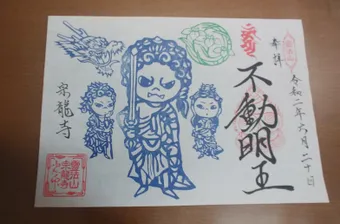 奉拝
令和二年六月二十日
不動明王
宗龍寺